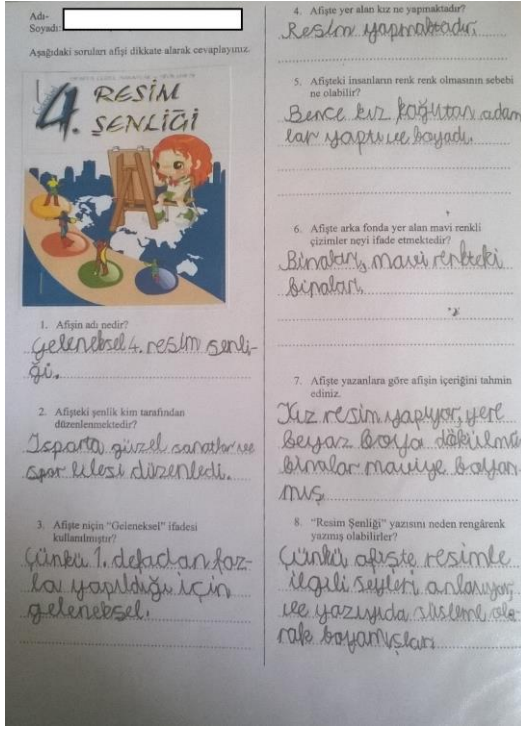 Adı-
Soyadı:
Aşağıdaki soruları afişi dikkate alarak cevaplayınız.
4. RESİM
ŞENLİĞİ
1. Afişin adı nedir?
geleneksel 4. resim şenli-
ği.
2. Afişteki şenlik kim tarafından
düzenlenmektedir?
Isparta güzel sanatlar ve
spor lilesi düzenledi.
3. Afişte niçin “Geleneksel” ifadesi
kullanılmıştır?
Çünkü 1. defadan faz-
la yapıldığı için
geleneksel.
4. Afişte yer alan kız ne yapmaktadır?
Resim yapmaktadır.
5. Afişteki insanların renk renk olmasının sebebi
ne olabilir?
Bence kız kağıttan adam
lar yaptı ve boyadı.
6. Afişte arka fonda yer alan mavi renkli
çizimler neyi ifade etmektedir?
Binaları, mavi renkteki
binaları.
7. Afişte yazanlara göre afişin içeriğini tahmin
ediniz.
Kız resim yapıyor, yere
beyaz boya dökülmüş
binalar maviye boyan
mış.
8. “Resim Şenliği” yazısını neden rengârenk
yazmış olabilirler?
Çünkü afişte resimle
ilgili şeyleri anlatıyor,
ve yazıyıda süsleme ola
rak boyamışlar.